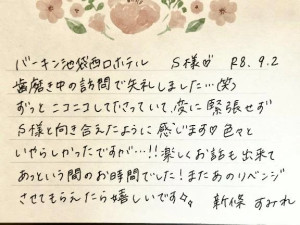 バーキン池袋西口ホテル S様♡ R8.9.2
歯磨き中の訪問で失礼しました…(笑)
ずっとニコニコして下さっていて、変に緊張せず
S様と向き合えたように感じます♡色々と
いやらしかったですが…!!楽しくお話も出来て
あっという間のお時間でした!またあのリベンジ
させてもらえたら嬉しいです♡。 新條 すみれ